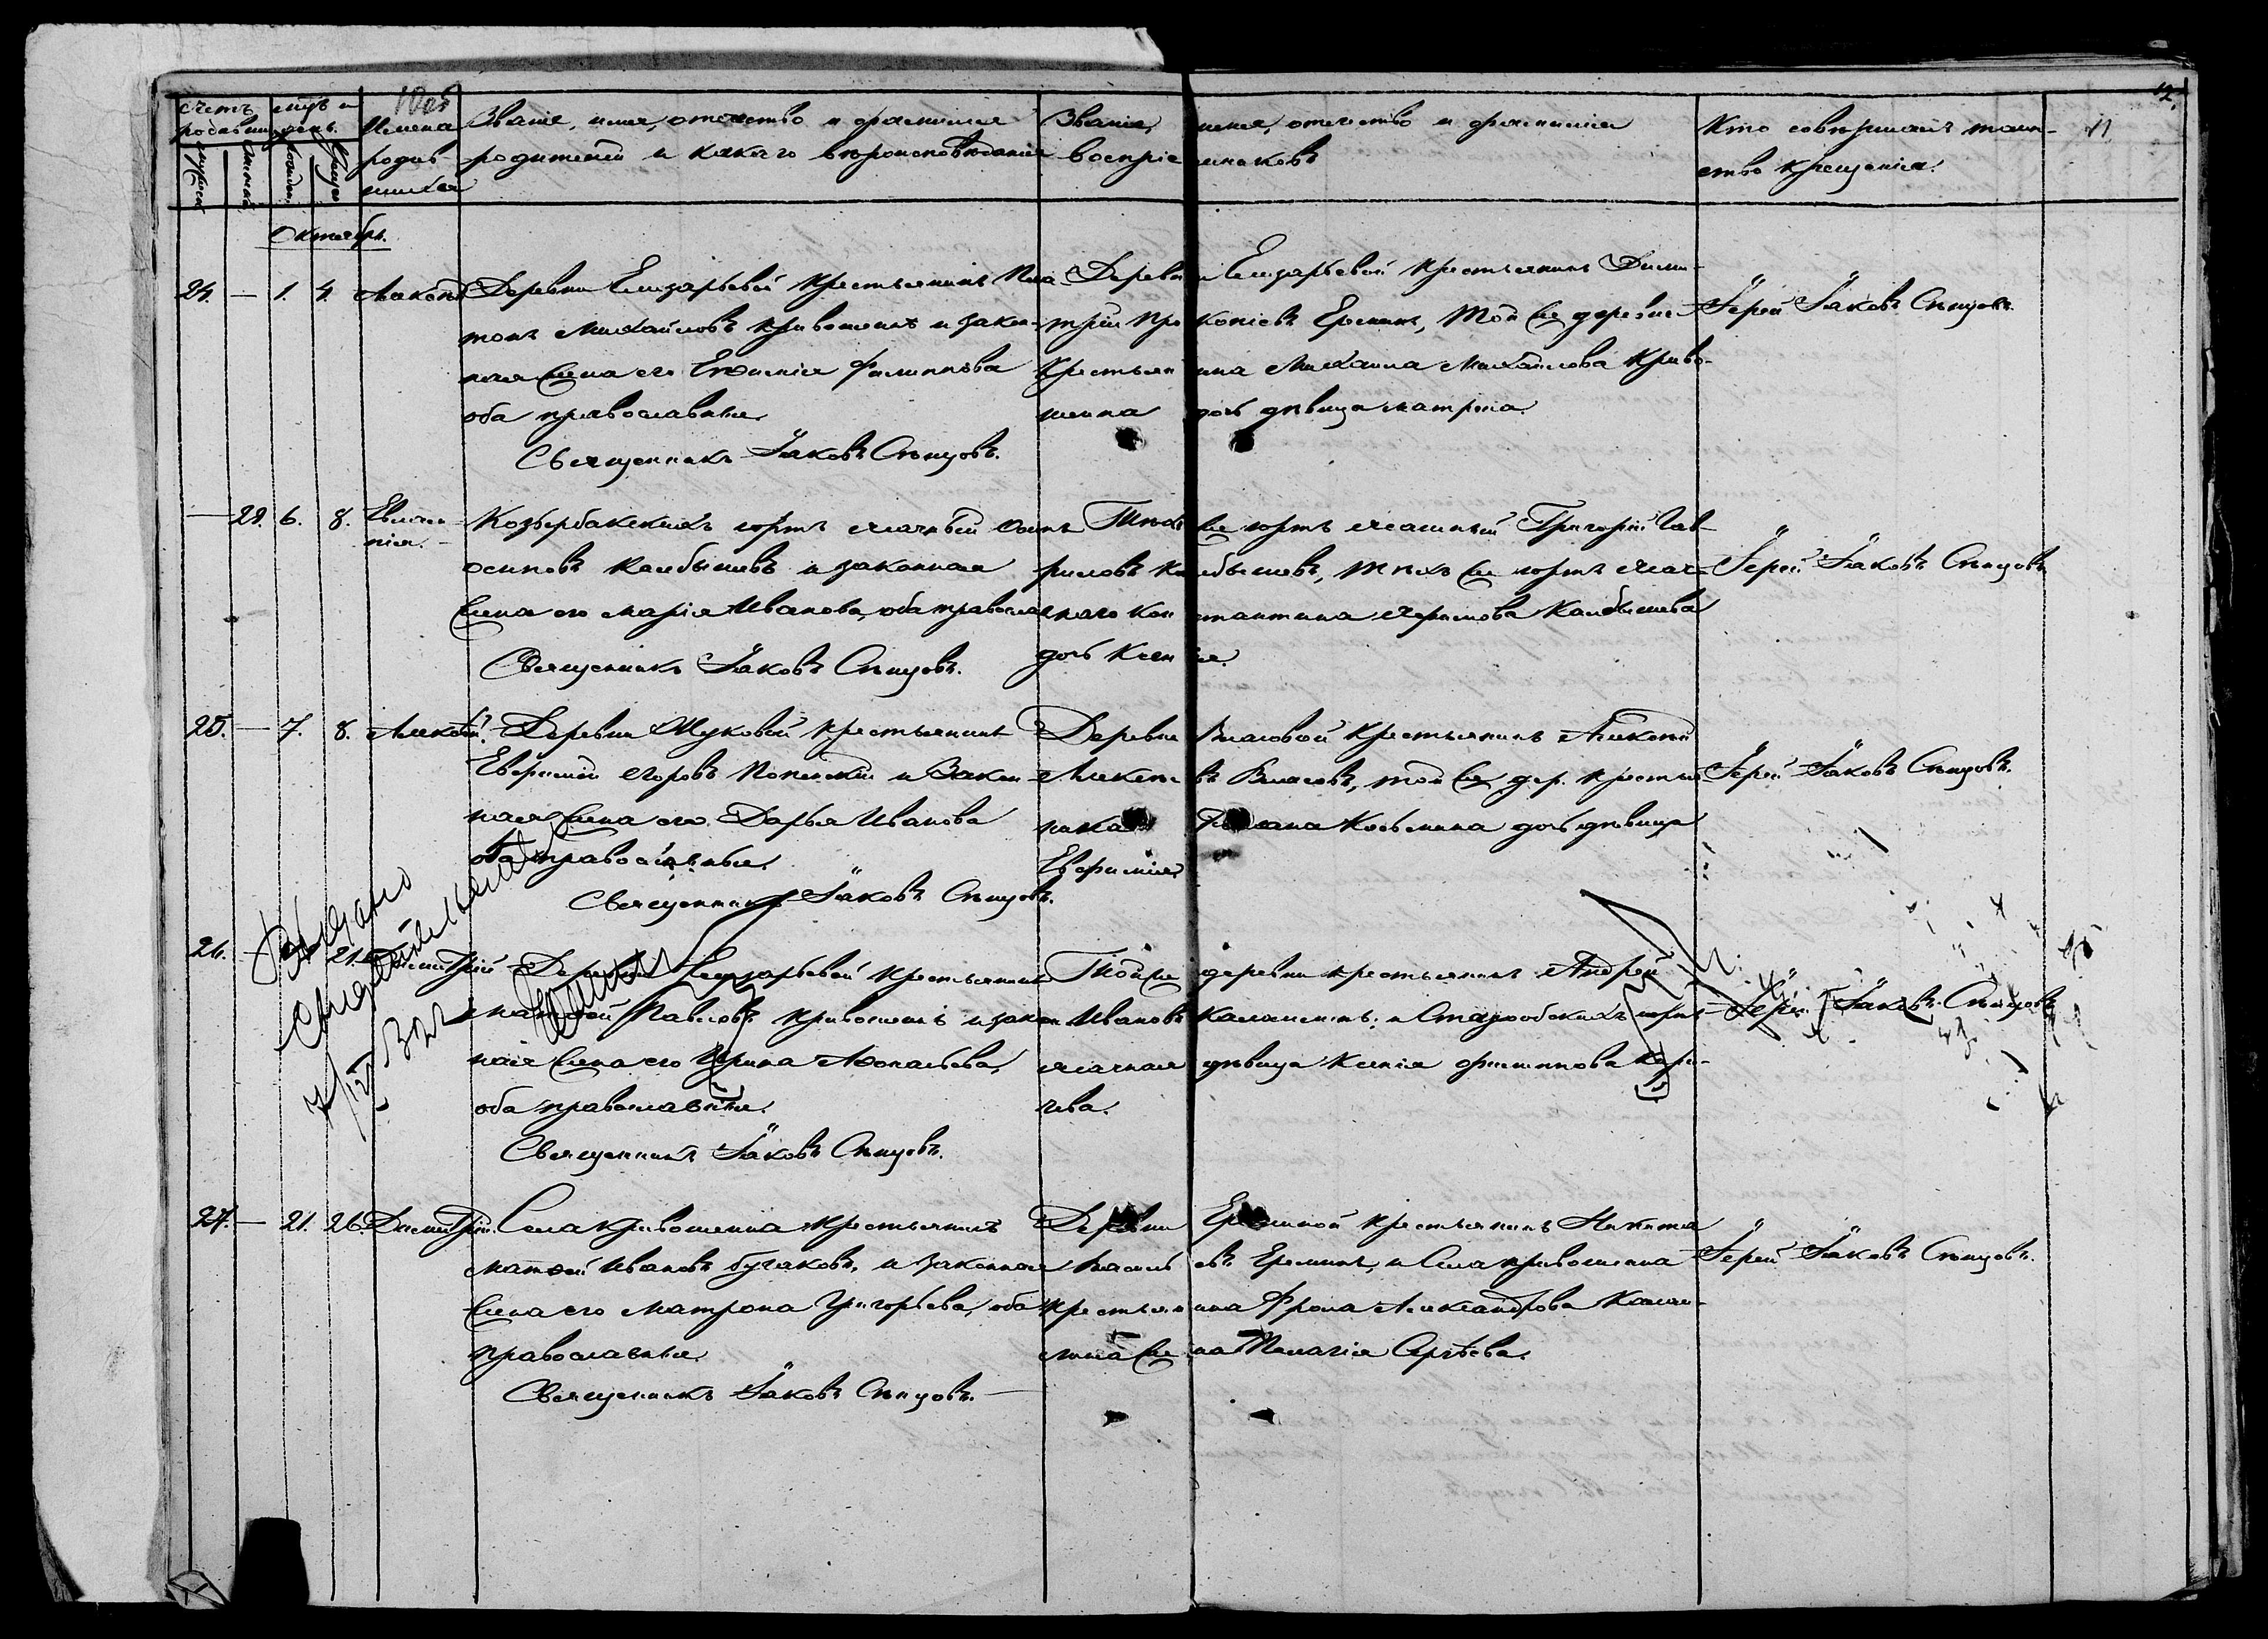 Счетъ родившихся
мужеска
женска
мѣс. и день
рожден.
крещен.
Имена
родив-
шихся
Званіе, имя, отчество и фамилія
родителей и какого вѣроисповѣданія
Званіе, имя, отчество и фамилія
воспріемниковъ
Кто совершалъ таин-
ство крещенія.
12.
Октябрь.
24. — 1. 4.
Деревни Елизарьевой крестьянинъ Пла-
тонъ Михайловъ Кривошеинъ и закон-
ная жена его Евѳимія Филиппова
оба православные.
Священникъ Іаковъ Спицовъ.
Деревни Елизарьевой крестьянинъ Дими-
трій Прокопіевъ Ереминъ, той же деревни
крестьянина Михаила Михайлова Криво-
шеина дочь дѣвица Матрона.
Іерей Іаковъ Спицовъ.
— 28. 6. 8. Евлам-
пія.
юртъ ясачный Осипъ
Осиповъ Калбышевъ и законная
жена его Марія Иванова, оба правосла
Священникъ Іаковъ Спицовъ.
Тѣхъ же юртъ ясашный Григорій Гав-
риловъ Калбышевъ, тѣхъ же юртъ ясач-
наго Константина Калбышева
дочь Ксенія.
Іерей Іаковъ Спицовъ
25. — 7. 8. Алексѣй.
Деревни Жуковой крестьянинъ
Евфимій Егоровъ и Закон-
ная жена его Дарья Иванова
оба православные.
Священникъ Іаковъ Спицовъ.
Деревни Власовой крестьянинъ Алексѣй
Алексѣевъ Власовъ, той же дер. крестья-
нина Косьмина дочь дѣвица
Евфимія.
Іерей Іаковъ Спицовъ.
Выдано
свидѣтельство
26. — 21. Димитрій
Деревни Елизарьевой крестьянинъ
Матѳей Павловъ Кривошеинъ и закон-
ная жена его Ирина Аѳонасьева,
оба православные.
Священникъ Іаковъ Спицовъ.
Той же деревни крестьянинъ Андрей
Ивановъ и юртъ
ясачная дѣвица Ксенія Филиппова Кари-
чева.
Іерей Іаковъ Спицовъ
27. — 21. 26. Димитрій.
Села Кривошеина крестьянинъ
Матѳей Ивановъ Бугаковъ, и законная
жена его Матрона Григорьева, оба
православные.
Священникъ Іаковъ Спицовъ.
Деревни Ереминой крестьянинъ Никита
Васильевъ Ереминъ, и Села Кривошеина
крестьянина Фрола Александрова
жена Пелагія Сергѣева.
Іерей Іаковъ Спицовъ.